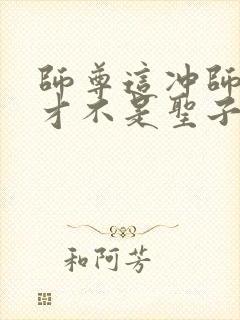 師尊這冲師
才不是聖子
和阿芳